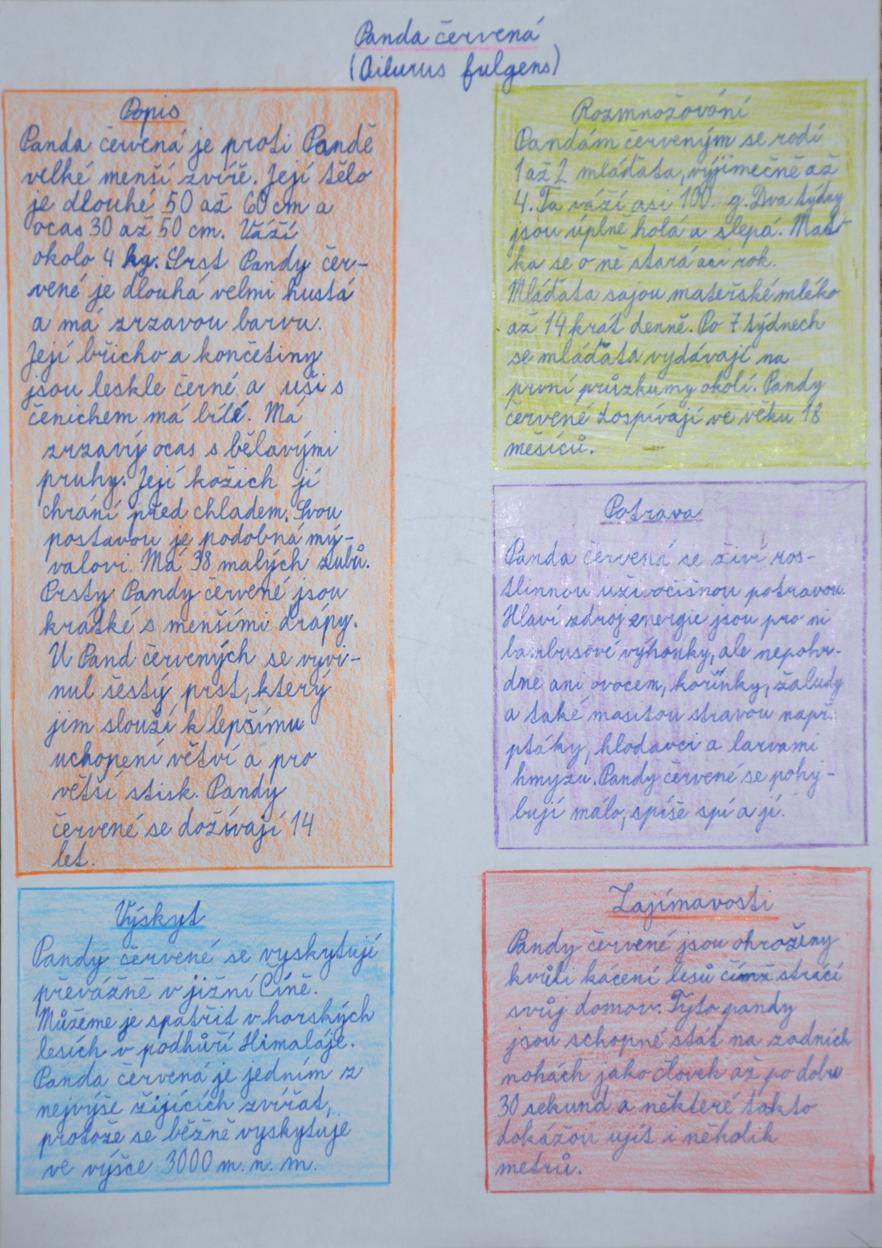 Panda červená
(Ailurus fulgens)
Popis
Panda červená je proti Pandě
velké menší zvíře. Její tělo
je dlouhé 50 až 60 cm a
ocas 30 až 50 cm. Váží
okolo 4 kg. Srst Pandy čer-
vené je dlouhá velmi hustá
a má zrzavou barvu.
Její břicho a končetiny
jsou leskle černé a uši s
čenichem má bílé. Má
zrzavý ocas s bělavými
pruhy. Její kožich jí
chrání před chladem. Svou
postavou je podobná mý-
valovi. Má 38 malých zubů.
Prsty Pandy červené jsou
kratké s menšími drápy.
U Pand červených se vyvi-
nul šestý prst, který
jim slouží k lepšímu
uchopení větví a pro
větší stisk. Pandy
červené se dožívají 14
let.
Výskyt
Pandy červené se vyskytují
převážně v jižní Číně.
Můžeme je spatřit v horských
lesích v podhůří Himaláje.
Panda červená je jedním z
nejvýše žijících zvířat,
protože se běžně vyskytuje
ve výšce 3000 m. n. m.
Rozmnožování
Pandám červeným se rodí
1 až 2 mláďata, výjimečně až
4. Ta váží asi 100 g. Dva týdny
jsou úplně holá a slepá. Mat-
ka se o ně stará asi rok.
Mláďata sajou mateřské mléko
až 14 krát denně. Po 7 týdnech
se mláďata vydávají na
první průzkumy okolí. Pandy
červené dospívají ve věku 18
měsíců.
Potrava
Panda červená se živí ros-
tlinnou i živočišnou potravou.
Hlaví zdroj energie jsou pro ni
bambusové výhonky, ale nepohr-
dne ani ovocem, kořínky, žaludy
a také masitou stravou např.
ptáky, hlodavci a larvami
hmyzu. Pandy červené se pohy-
bují málo, spíše spí a jí.
Zajímavosti
Pandy červené jsou ohroženy
kvůli kácení lesů čímž strácí
svůj domov. Tyto pandy
jsou schopné stát na zadních
nohách jako člověk až po dobu
30 sekund a některé takto
dokážou ujít i několik
metrů.